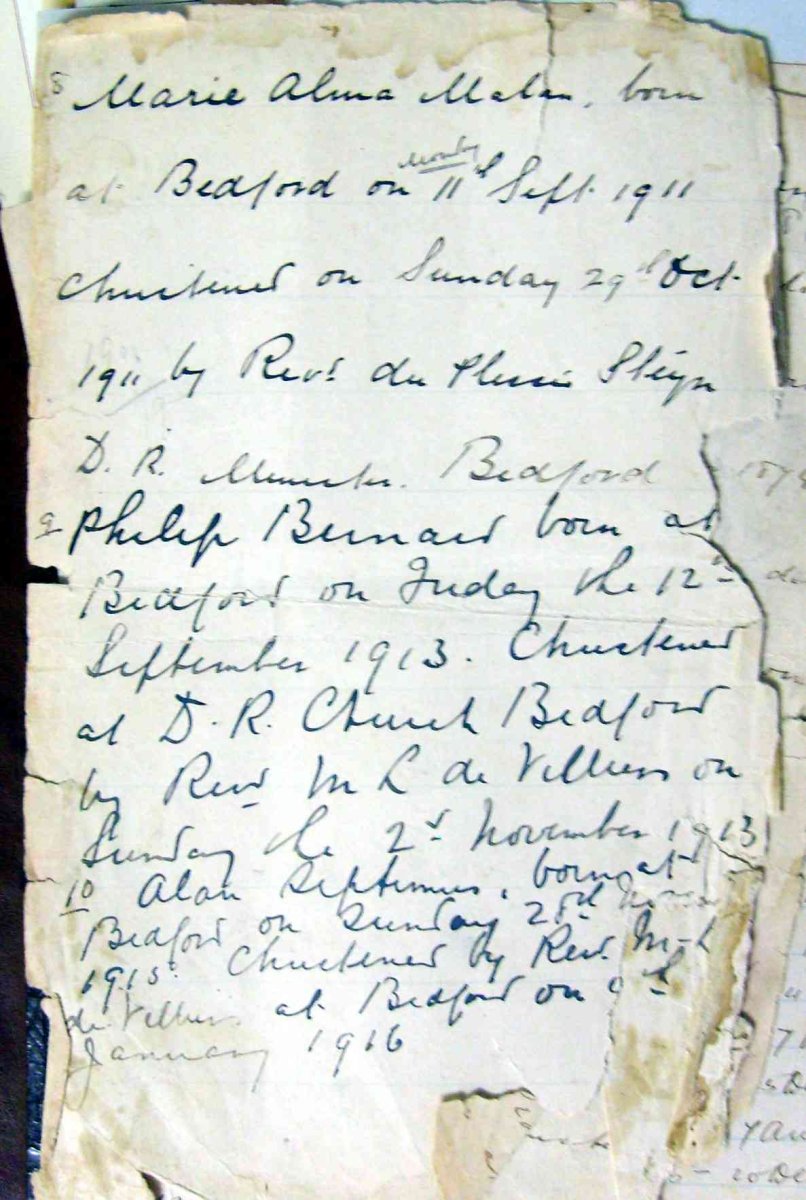 8 Marie Alma Malan, born
Monday
at Bedford on 11th Sept. 1911
Christened on Sunday 29th Oct.
1911 by Revd. du Plessis Steyn
D. R. Minister. Bedford
9 Philip Bernard born at
Bedford on Friday the 12th
September 1913. Christened
at D. R. Church Bedford
by Revd M L de Villiers on
Sunday the 2nd November 1913
10 Alan Septimus, born at
Bedford on Sunday
1915. Christened by Revd. M-L
de Villiers at Bedford on
January 1916